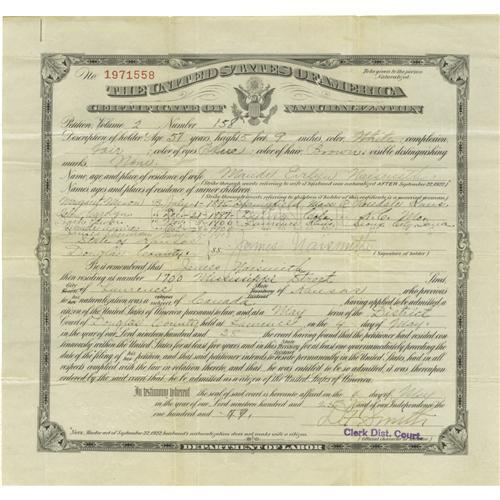 No. 1971558
To be given to the person Naturalized.
THE UNITED STATES OF AMERICA
CERTIFICATE OF NATURALIZATION
Petition, Volume 2 Number 158
Description of holder: Age, 57 years; height, 5 feet, 9 inches; color, White; complexion,
Fair; color of eyes, Blue; color of hair, Brown; visible distinguishing
marks, None
Name, age and place of residence of wife, Maude Evelyn Naismith
(Strike through words referring to wife if husband was naturalized AFTER September 22, 1922.)
Names, ages and places of residence of minor children
State of Kansas
Douglas County
James Naismith
(Signature of holder)
Be it remembered that James Naismith
then residing at number 1700 Mississippi Street
City of Lawrence State of Kansas who previous
to his naturalization was a subject of Canada, having applied to be admitted a
citizen of the United States of America pursuant to law, and at a May term of the District
Court of Douglas County held at Lawrence on the 4 day of May
in the year of our Lord nineteen hundred and 25 the court having found that the petitioner had resided con-
tinuously within the United States for at least five years and in this State for at least one year immediately preceding the
date of the filing of his petition, and that said petitioner intends to reside permanently in the United States, had in all
respects complied with the law in relation thereto, and that he was entitled to be so admitted, it was thereupon
ordered by the said court that he be admitted as a citizen of the United States of America.
In testimony whereof the seal of said court is hereunto affixed on the 4 day of May
in the year of our Lord nineteen hundred and 25 and of our Independence the
one hundred and 49.
Clerk Dist. Court.
(Official character of
Note. Under act of September 22, 1922, husband's naturalization does not make wife a citizen.
DEPARTMENT OF LABOR